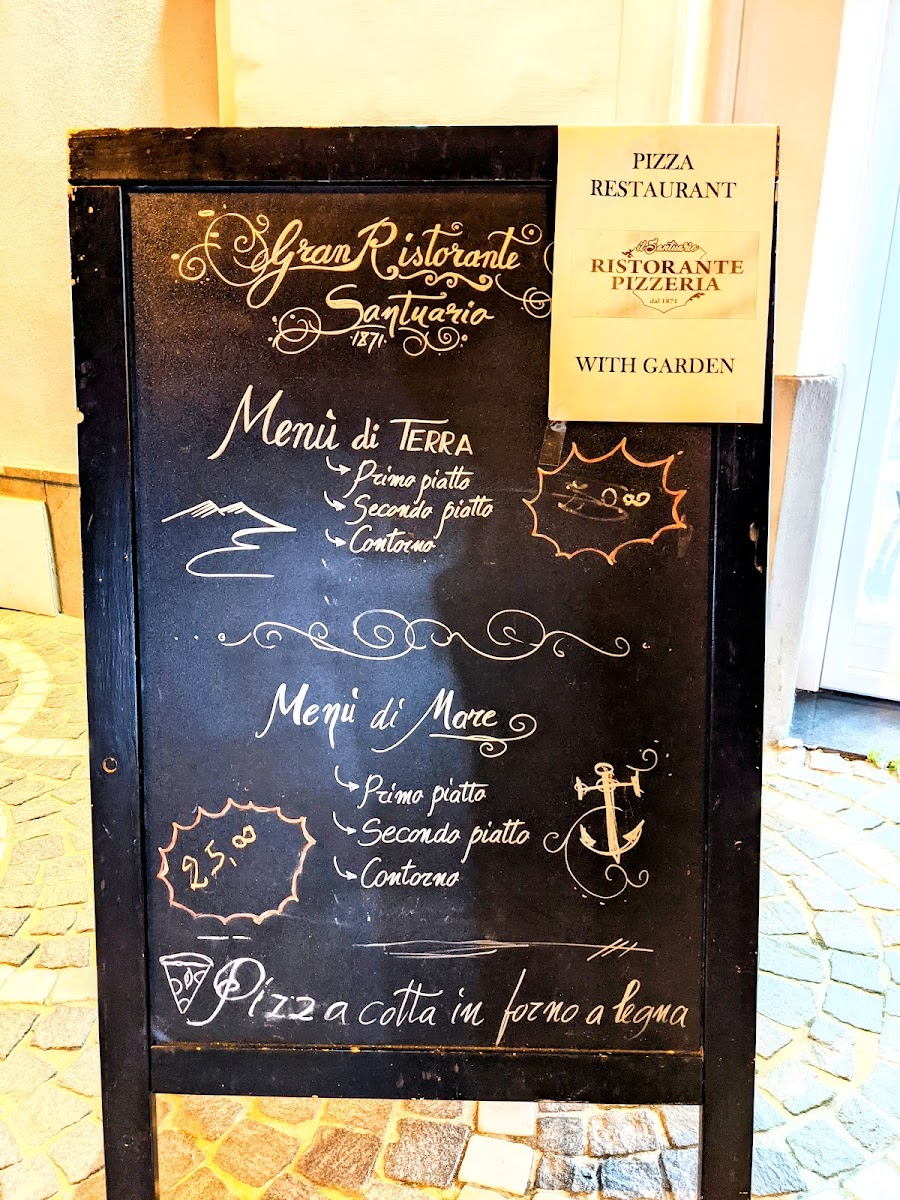 PIZZA
RESTAURANT
il Santuario
RISTORANTE
PIZZERIA
dal 1871
WITH GARDEN
Gran Ristorante
Santuario
1871
Menù di TERRA
Primo piatto
Secondo piatto
Contorno
Menù di Mare
Primo piatto
Secondo piatto
Contorno
25,00
Pizza cotta in forno a legna